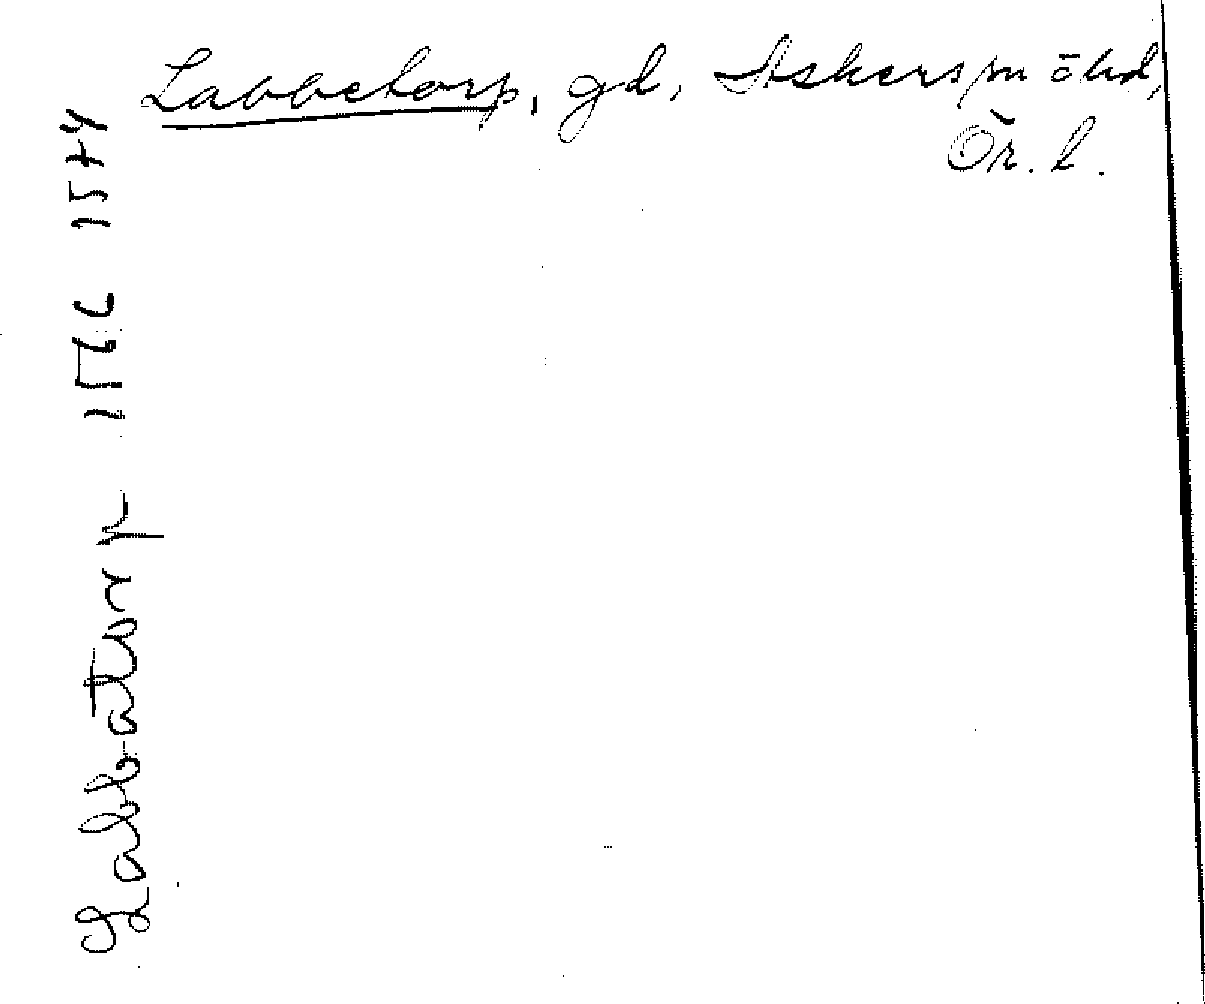 Labbetorp, gd, Askers sn o hd,
Ör. l.
Labbatorp 1566 1574